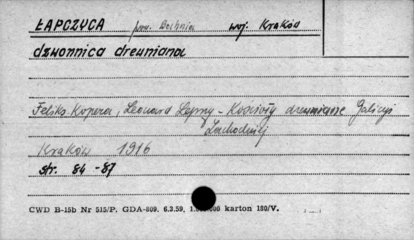 ŁAPCZYCA pow. Bochnia woj. Kraków
dzwonnica drewniana
Feliks Kopera, Leonard Lepszy - Kościoły drewniane Galicji
Zachodniej
Kraków 1916
str. 84 - 87
CWD B-15b Nr 515/P. GDA-809. 6.3.59, 000 karton 180/V.